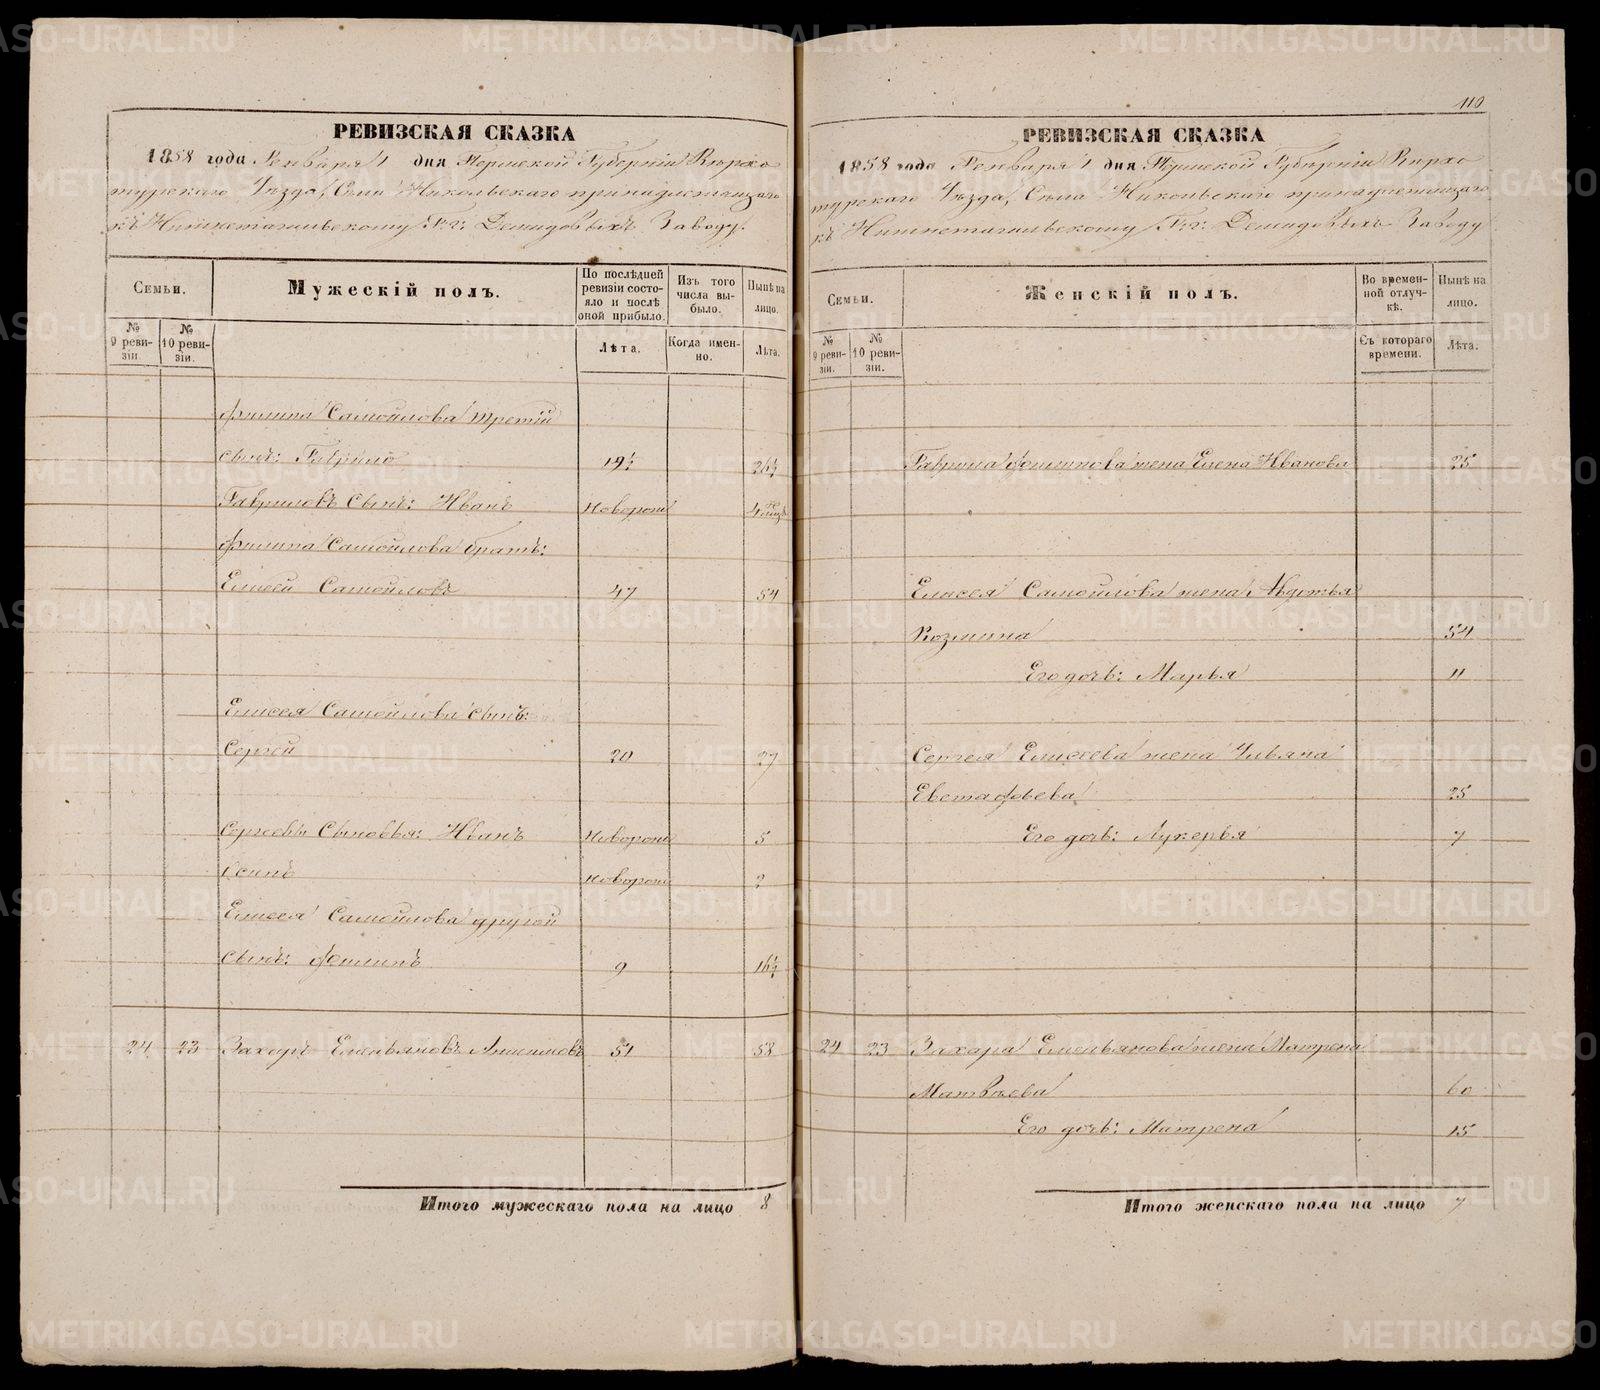 РЕВИЗСКАЯ СКАЗКА
1858 года Генваря 1 дня Пермской Губерніи Верхо
турскаго Уѣзда, Села Никольскаго принадлежащаго
къ Нижнетагильскому Г:г: Демидовыхъ Заводу.
Семьи.
Мужескій полъ.
По послѣдней ревизіи состояло и послѣ оной прибыло.
Изъ того числа выбыло.
Нынѣ на лицо.
№ 9 ревизіи.
№ 10 ревизіи.
Лѣта.
Когда именно.
Лѣта.
Филипа Самойлова третій
сынъ: Гаврило 19½ 26½
Гавриловъ сынъ: Иванъ новорож 4
Филипа Самойлова братъ:
Елисей Самойловъ 47 54
Елисея Самойлова сынъ:
Сергей 20 27
Сергеевы сыновья: Иванъ новорож 5
Осипъ новорож 2
Елисея Самойлова другой
сынъ: Филипъ 9 16½
24 23 Захаръ Емельяновъ Анисимовъ 51 58
Итого мужескаго пола на лицо 8
110
РЕВИЗСКАЯ СКАЗКА
1858 года Генваря 1 дня Пермской Губерніи Верхо
турскаго Уѣзда, Села Никольскаго принадлежащаго
къ Нижнетагильскому Г:г: Демидовыхъ Заводу
Семьи.
Женскій полъ.
Во временной отлучкѣ.
Нынѣ на лицо.
№ 9 ревизіи.
№ 10 ревизіи.
Съ котораго времени.
Лѣта.
Гаврила Филипова жена Елена Иванова 25
Елисея Самойлова жена Авдотья
Козмина 54
Его дочь: Марья 11
Сергея Елисеева жена Ульяна
Евстафьева 25
Его дочь: Лукерья 7
24 23 Захара Емельянова жена Матрена
Матвѣева 60
Его дочь: Матрена 15
Итого женскаго пола на лицо 7
METRIKI.GASO-URAL.RU